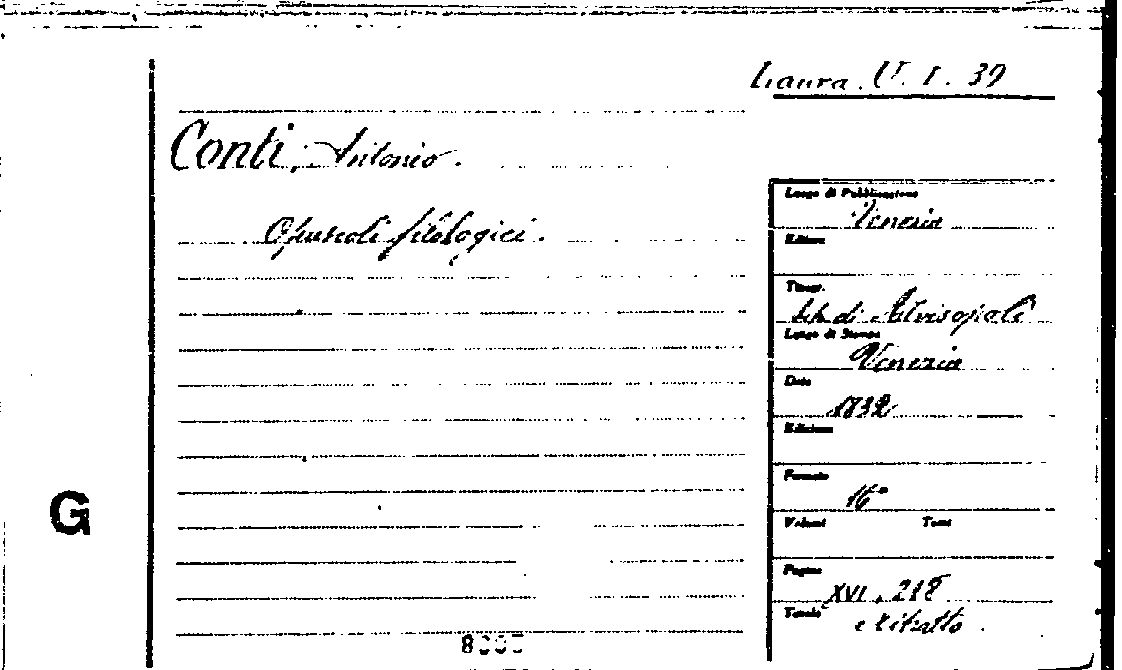 Laura. U. 1. 39
Conti, Antonio.
Opuscoli filologici.
Luogo di Pubblicazione
Venezia
Editore
Tipogr.
tip. di Alvisopoli
Luogo di Stampa
Venezia
Data
1832
Edizione
Formato
16°
Volumi Tomi
Pagine
XVI, 218
Tavole
e ritratto.
G